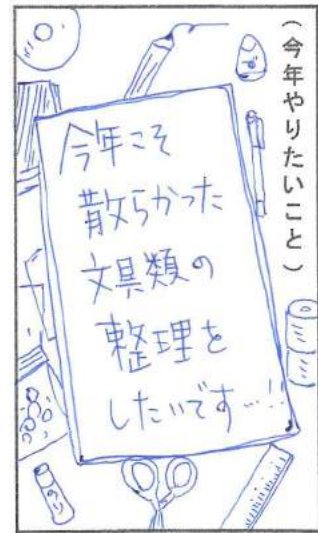 （今年やりたいこと）
今年こそ
散らかった
文具類の
整理を
したいです…!!
のり